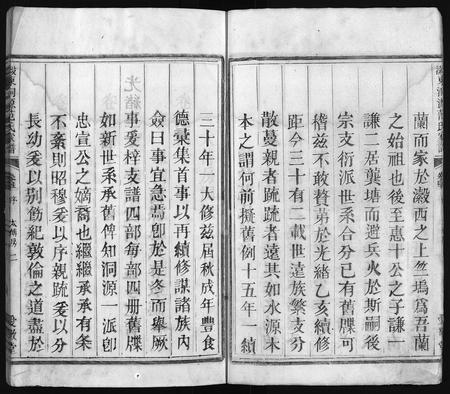 蘭而家於瀫西之上竺塢爲吾蘭
之始祖也後至惠十公之子謙一
謙二居龔塘而避兵火於斯嗣後
宗支衍派世系合分已有舊牒可
稽兹不敢贅弟於光緒乙亥續修
距今三十有二載世遠族繁支分
散蔓親者踈踈者遠其如水源木
本之謂何前擬舊例十五年一續
三十年一大修兹屆秋成年豐食
德彙集首事以再續修謀諸族內
僉曰事宜急蔫卽於是冬而舉厥
事爰梓支譜四部每部四冊舊牒
如新世系了然俾知洞源一派卽
忠宣公之嫡裔也繼繼承承有条
不紊則昭穆爰以序親踈爰以分
長幼爰以別飭紀敦倫之道盡於
光緒
序